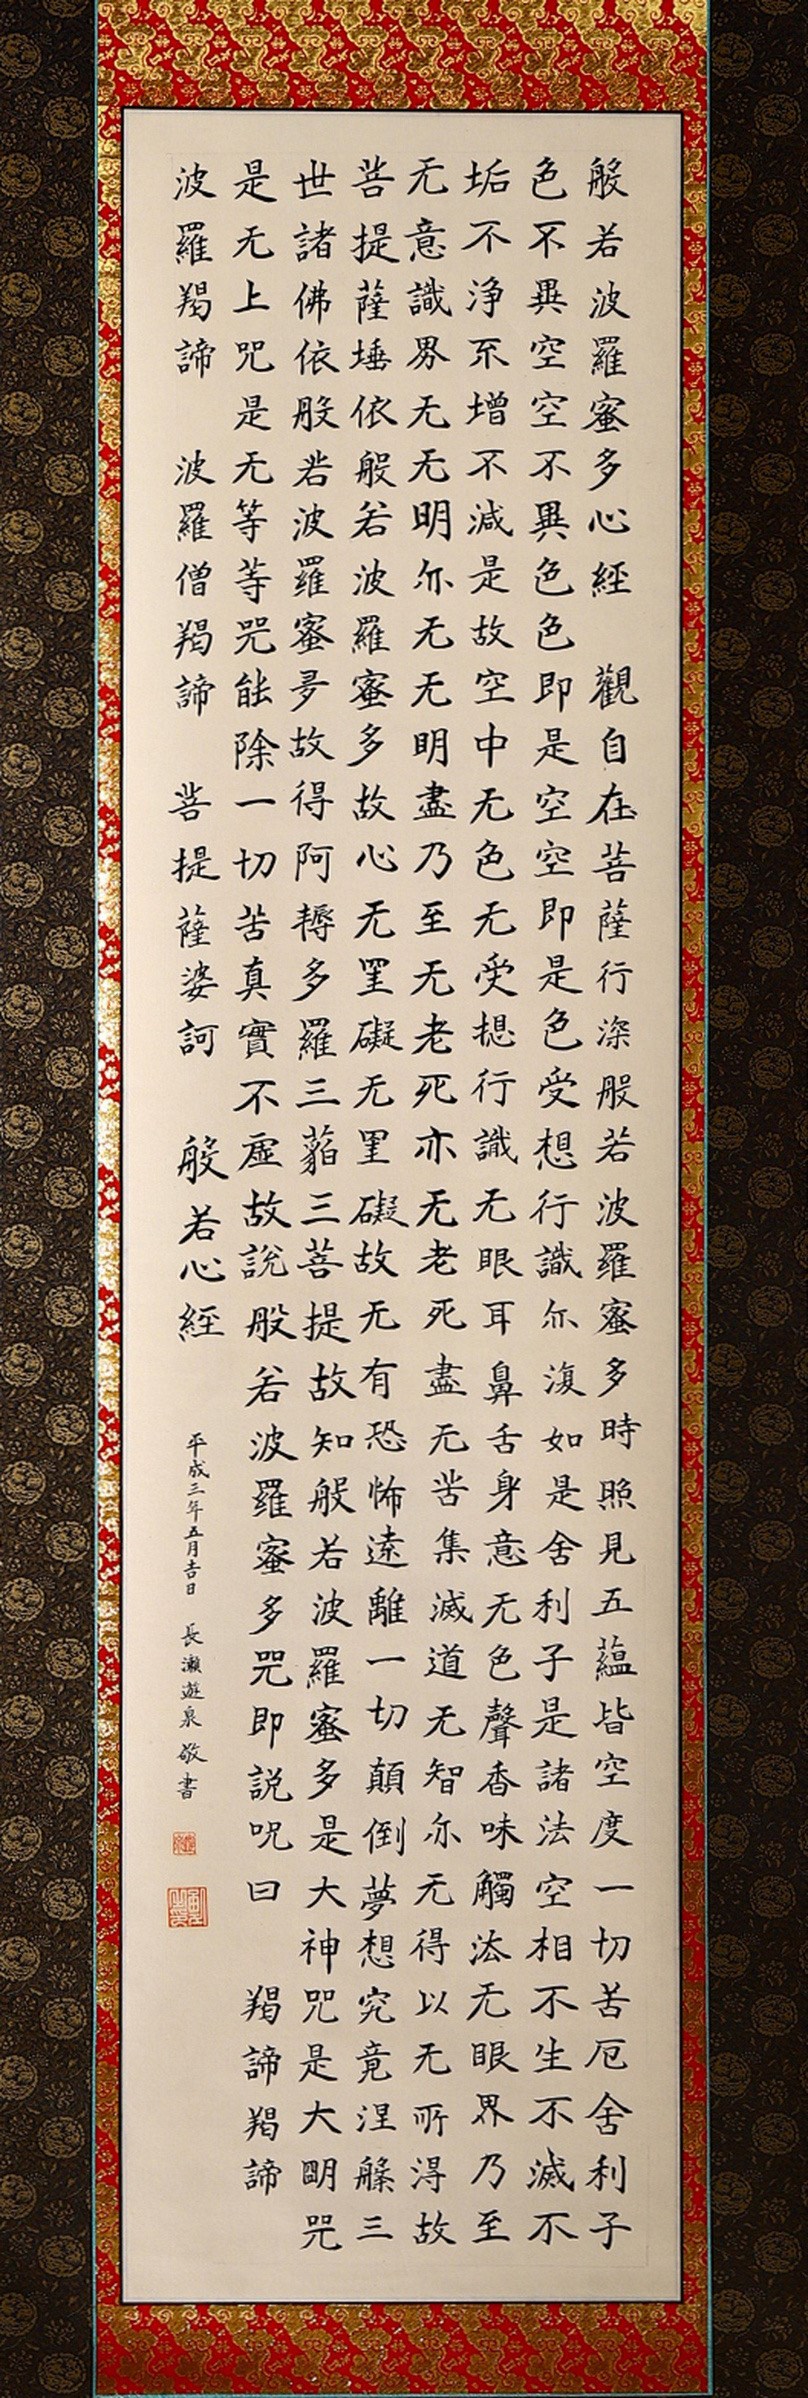 般若波羅蜜多心經 觀自在菩薩行深般若波羅蜜多時照見五蘊皆空度一切苦厄舍利子
色不異空空不異色色即是空空即是色受想行識亦復如是舍利子是諸法空相不生不滅不
垢不浄不増不減是故空中无色无受想行識无眼耳鼻舌身意无色聲香味觸法无眼界乃至
无意識界无无明亦无无明盡乃至无老死亦无老死盡无苦集滅道无智亦无得以无所得故
菩提薩埵依般若波羅蜜多故心无罣礙无罣礙故无有恐怖遠離一切顛倒夢想究竟涅槃三
世諸佛依般若波羅蜜多故得阿耨多羅三藐三菩提故知般若波羅蜜多是大神咒是大明咒
是无上咒是无等等咒能除一切苦真實不虛故說般若波羅蜜多咒即説呪曰 羯諦羯諦
波羅羯諦 波羅僧羯諦 菩提薩婆訶 般若心経
平成三年五月吉日 長瀬遊泉敬書